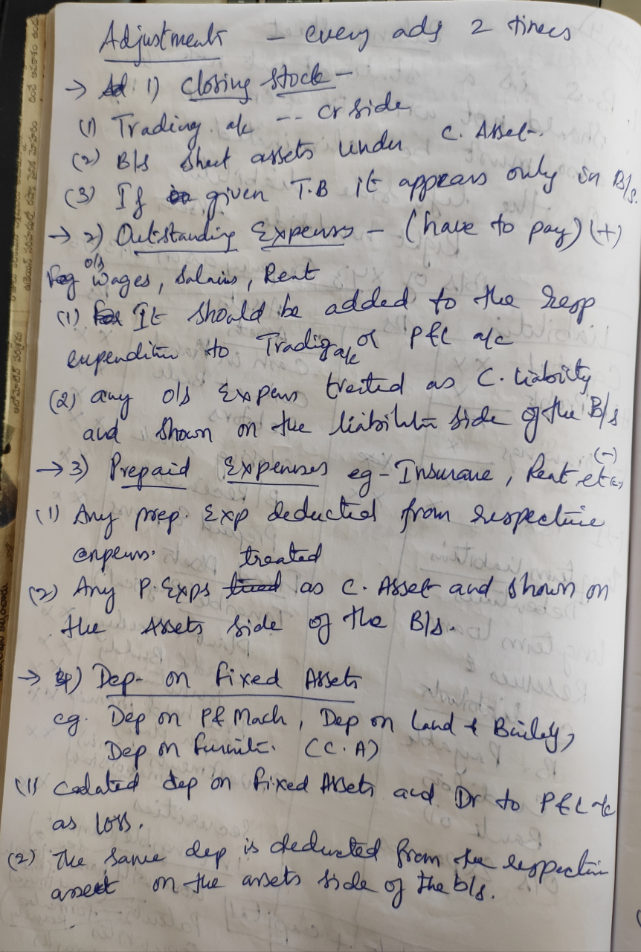 Adjustments - every adj 2 times
→ 1) Closing Stock -
(1) Trading a/c -- cr side
(2) B/s sheet assets under C. Asset.
(3) If given T.B it appears only in B/s.
→ 2) Outstanding Expenses - (have to pay) (+)
Eg o/s wages, Salaries, Rent
(1) It should be added to the resp
expenditure to Trading a/c or P&L a/c
(2) any o/s Expens treated as C. Liability
and shown on the liabilities side of the B/s
→ 3) Prepaid Expenses eg - Insurance, Rent etc, (-)
(1) Any prep. Exp deducted from respective
expens.
(2) Any P. Exps treated as C. Asset and shown on
the Assets side of the B/s.
→ 4) Dep- on Fixed Assets
eg. Dep on Pt Mach, Dep on Land & Building,
Dep on Furnit. (C.A)
(1) dep on fixed Assets and Dr to P&L a/c
as loss.
(2) The same dep is deducted from the respective
asset on the assets side of the b/s.